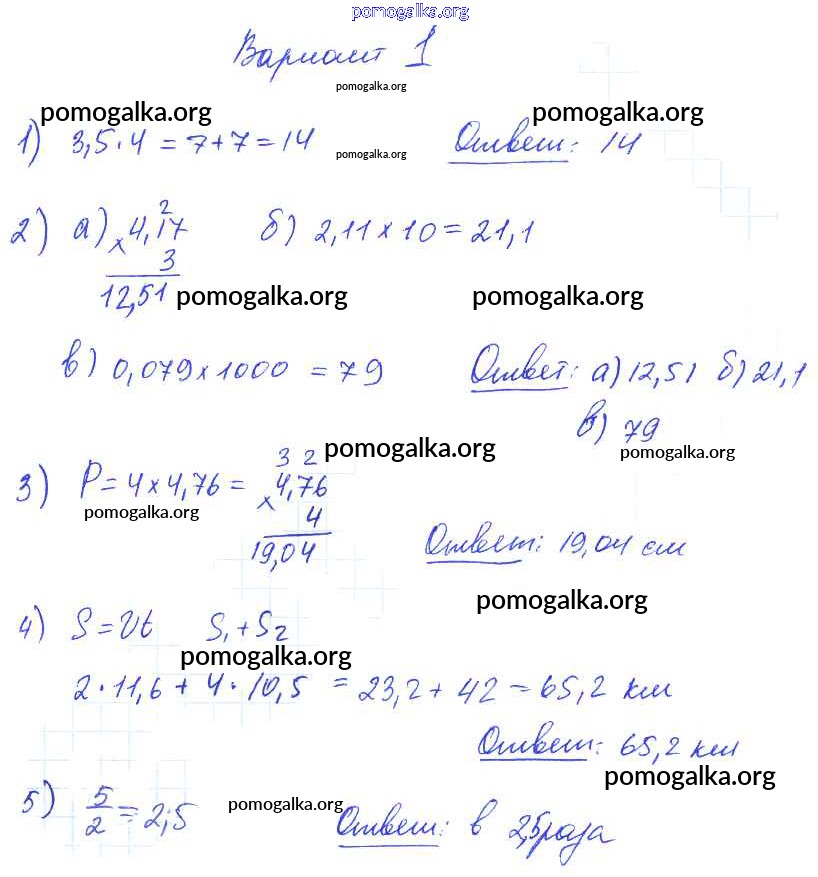 pomogalka.org
Вариант 1
pomogalka.org
pomogalka.org pomogalka.org
1) 3,5·4 = 7+7 = 14 pomogalka.org Ответ: 14
2
2) а) × 4,17 б) 2,11 × 10 = 21,1
3
12,51 pomogalka.org pomogalka.org
в) 0,079 × 1000 = 79 Ответ: а) 12,51 б) 21,1
в) 79
pomogalka.org pomogalka.org
3 2
3) P = 4 × 4,76 = × 4,76
pomogalka.org 4
19,04 Ответ: 19,04 см
pomogalka.org
4) S = vt S₁ + S₂
pomogalka.org
2·11,6 + 4·10,5 = 23,2 + 42 = 65,2 км
Ответ: 65,2 км
pomogalka.org
5) 5/2 = 2,5 pomogalka.org Ответ: в 2,5 раза